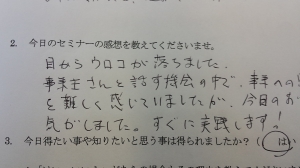 2. 今日のセミナーの感想を教えてくださいませ。
目からウロコが落ちました。
事業主さんと話す機会の中で、事業への
を難しく感じていましたが、今日のお
気がしました。すぐに実践します!
3. 今日得たい事や知りたいと思う事は得られましたか? ( はい